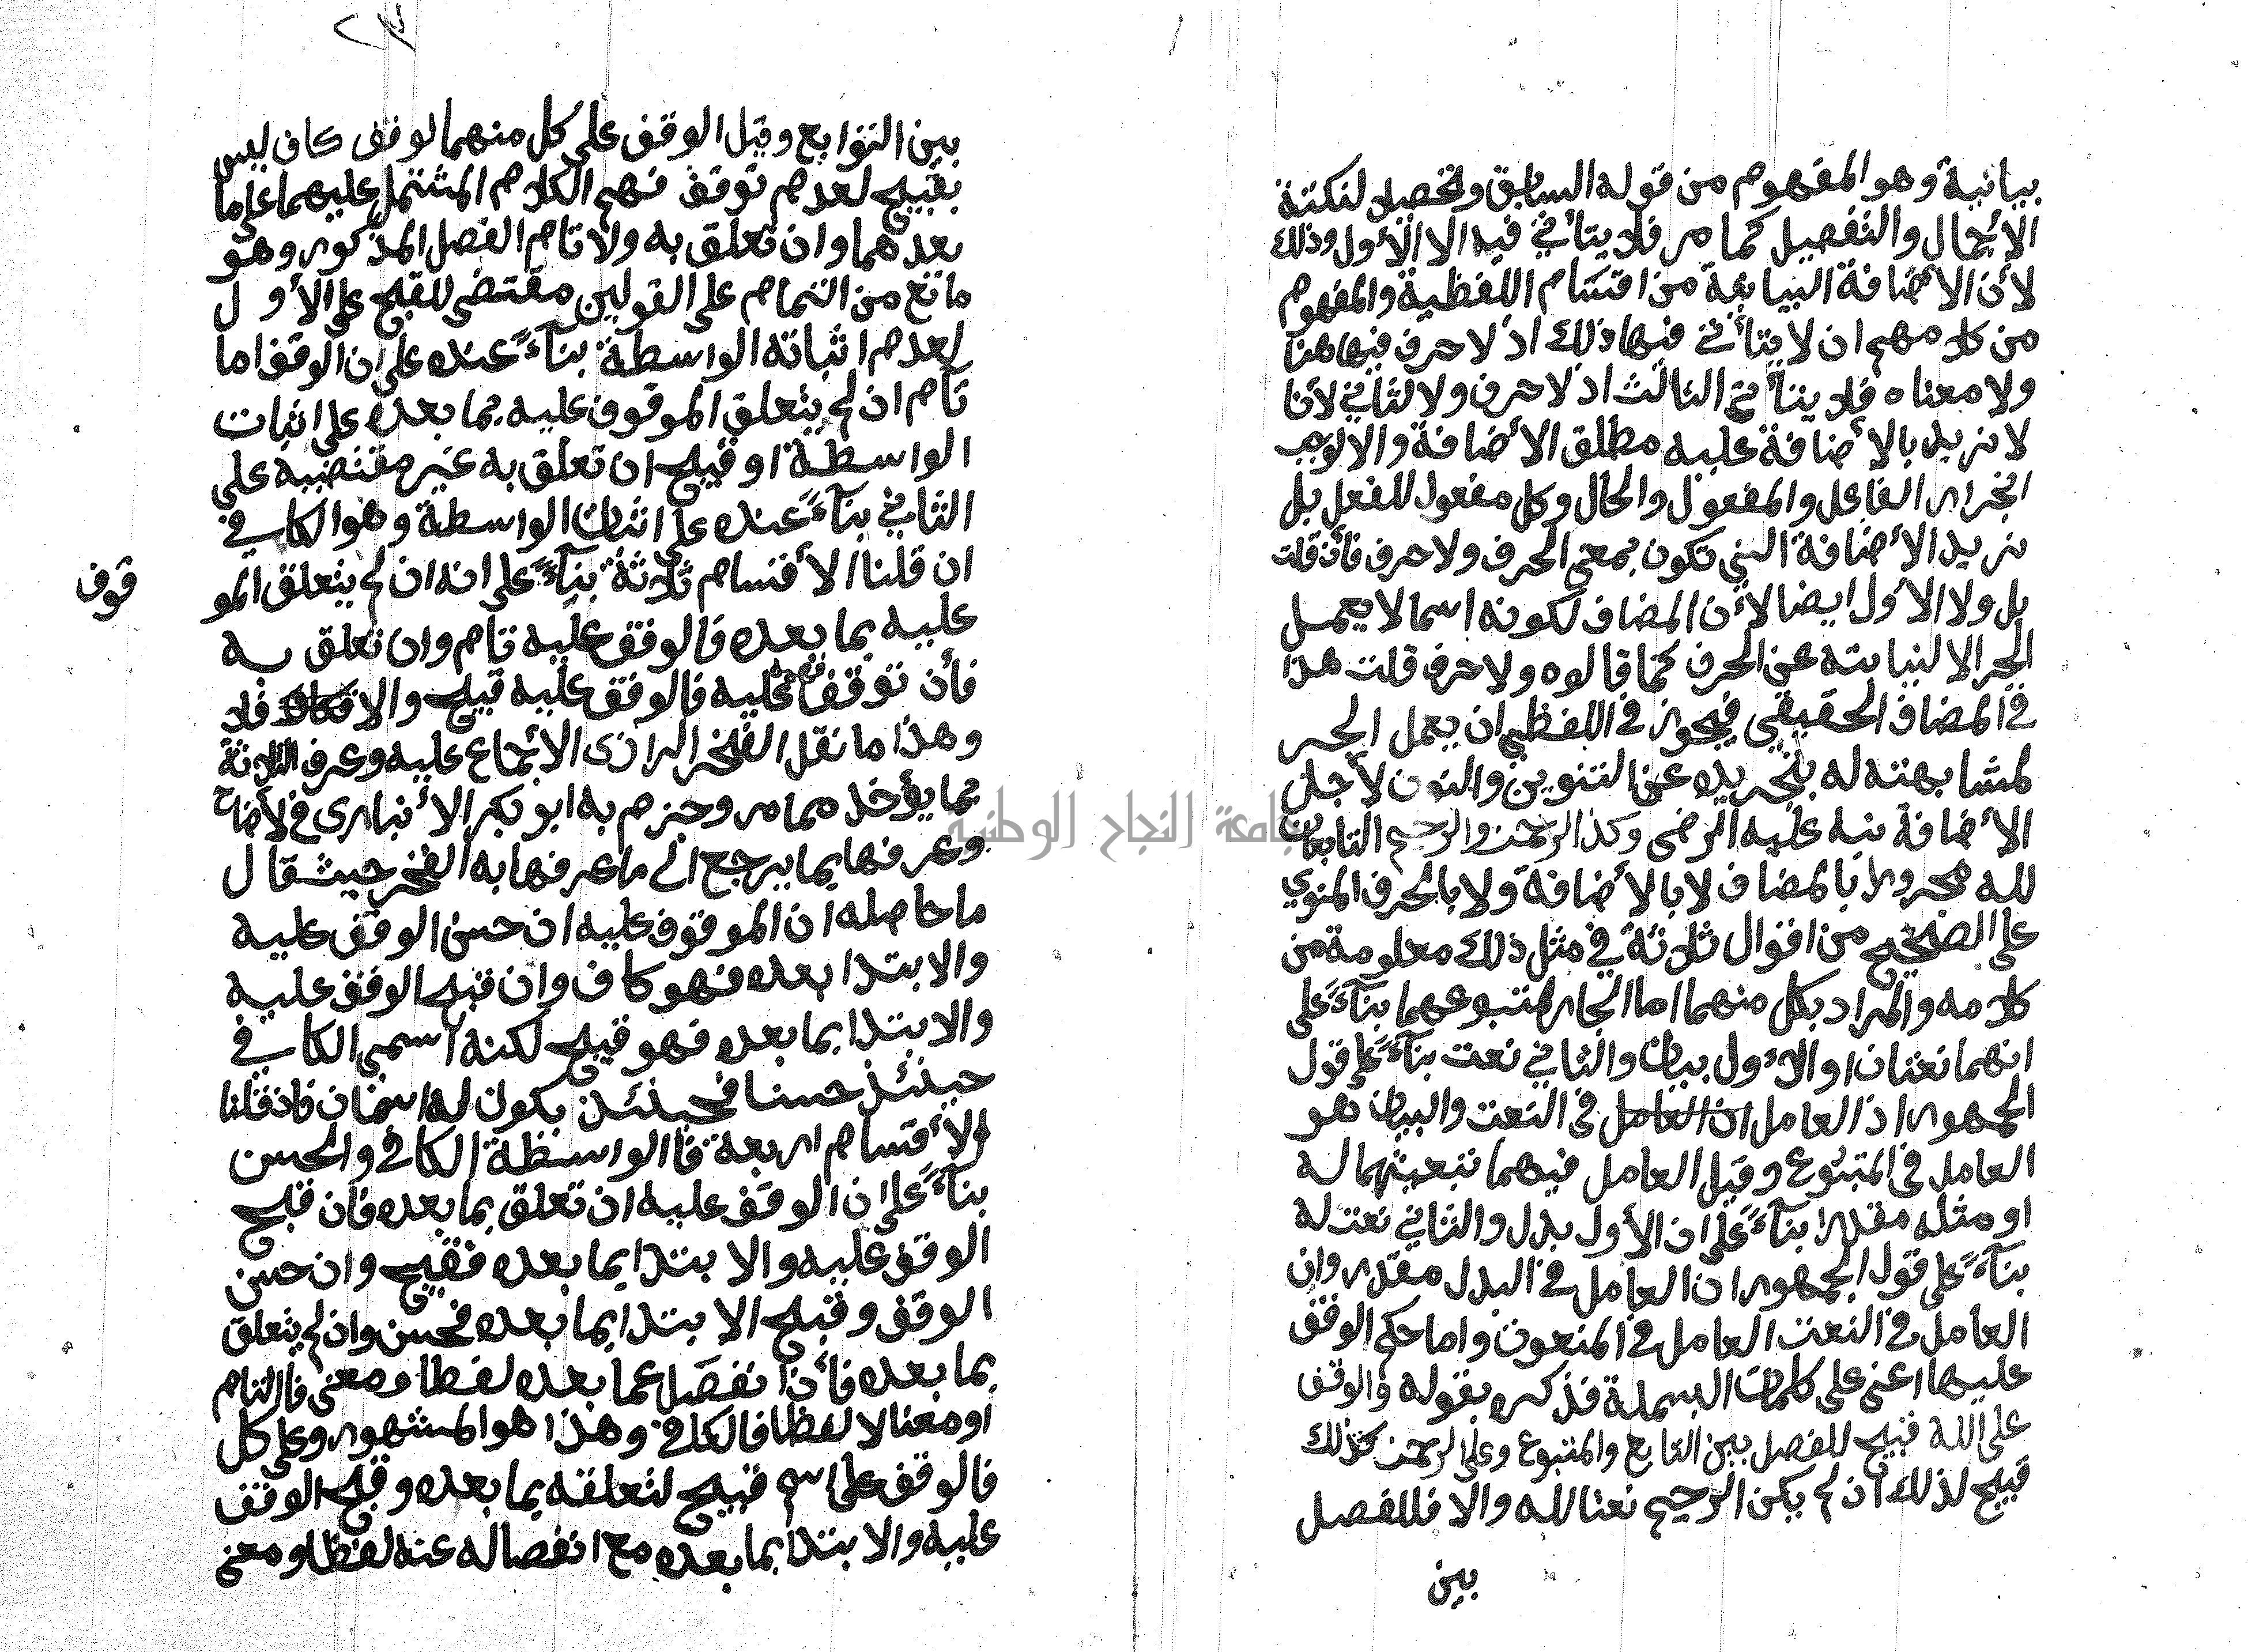 بيانية وهو المفهوم من قوله السابق وتحصيلا لنكتة
الأجمال والتفصيل كما مر فلا يتأتى فيه الا الأول وذلك
لأن الأضافة البيانية من اقسام اللفظية والمفهوم
من كلامهم ان لا يتأتى فيها ذلك اذ لا حرف فيها هنا
ولا معناه فلا يتأتى الثالث اذ لا حرف ولا الثاني لأنا
لا نريد بالأضافة عليه مطلق الأضافة والا لوجب
انجرار الفاعل والمفعول والحال وكل مفعول للفعل بل
نريد الأضافة التي تكون بمعنى الحرف ولا حرف فأن قلت
بل ولا الأول ايضا لأن المضاف لكونه اسما لا يعمل
الجر الا لنيابته عن الحرف كما قالوه ولا حرف قلت هذا
في المضاف الحقيقي فيجوز في اللفظي ان يعمل الجر
لمشابهته له بتجريده عن التنوين والنون لأجل
الأضافة نبه عليه الرضى وكذا الرحمن والرحيم التابعان
لله مجروران بالمضاف لا بالأضافة ولا بالحرف المنوي
على الصحيح من اقوال ثلاثة في مثل ذلك معلومة من
كلامه والمراد بكل منهما اما الجار لمتبوعهما بنآءً على
انهما نعتان او الأول بيان والثاني نعت بنآءً على قول
الجمهور اذ العامل ان العامل في النعت والبيان هو
العامل في المتبوع وقيل العامل فيهما تبعيتهما له
او مثله مقدرا بنآءً على ان الأول بدل والثاني نعت له
بنآءً على قول الجمهور ان العامل في البدل مقدر وان
العامل في النعت العامل في المنعوت واما حكم الوقف
عليها اعني على كلمات البسملة فذكره بقوله والوقف
على الله قبيح للفصل بين التابع والمتبوع وعلى الرحمن كذلك
قبيح لذلك ان لم يكن الرحيم نعتا لله والا فللفصل
بين
بين التوابع وقيل الوقف على كل منهما لوقف كاف ليس
بقبيح لعدم توقف فهم الكلام المشتمل عليهما على ما
بعدهما وان تعلق به ولا تام الفصل المذكور وهو
مانع من التمام على القولين مقتضى للقبح على الأول
لعدم اثباته الواسطة بنآءً عنده على ان الوقف اما
تام ان لم يتعلق الموقوف عليه بما بعده على اثبات
الواسطة او قبيح ان تعلق به غير مقتضيه على
الثاني بنآءً عنده على اثبات الواسطة وهو الكافي
ان قلنا الأقسام ثلاثة بنآءً على انه ان لم يتعلق المو
قوف
عليه بما بعده فالوقف عليه تام وان تعلق به
فأن توقف فهمه عليه فالوقف عليه قبيح والا فكاف فلا
وهذا ما نقل الفخر الرازى الأجماع عليه وعرف الثلاثة
بما يؤخذ مما مر وجزم به ابو بكر الأنبارى في لأضاح
وعرفها بما يرجع الى ما عرفها به الفخر حيث قال
ما حاصله ان الموقوف عليه ان حسن الوقف عليه
والابتدا بعده فهو كاف وان قبح الوقف عليه
والابتدا بما بعده فهو قبيح لكنه اسمى الكافي
حينئذ حسنا فحينئذ يكون له اسمان فاذ قلنا
الأقسام اربعة فاالواسطة الكافي والحسن
بنآءً على ان الوقف عليه ان تعلق بما بعده فأن قبح
الوقف عليه والابتدا بما بعده فقبيح وان حسن
الوقف وقبح الابتدا بما بعده فحسن وان لم يتعلق
بما بعده فأن انفصل عما بعده لفظا ومعنى فاالتام
او معنا لا لفظا فالكافي وهذا هو المشهور وعلى كل
فالوقف على اسم قبيح لتعلقه بما بعده وقبح الوقف
عليه والابتدا بما بعده مع انفصاله عنه لفظا ومعنى
جامعة النجاح الوطنية